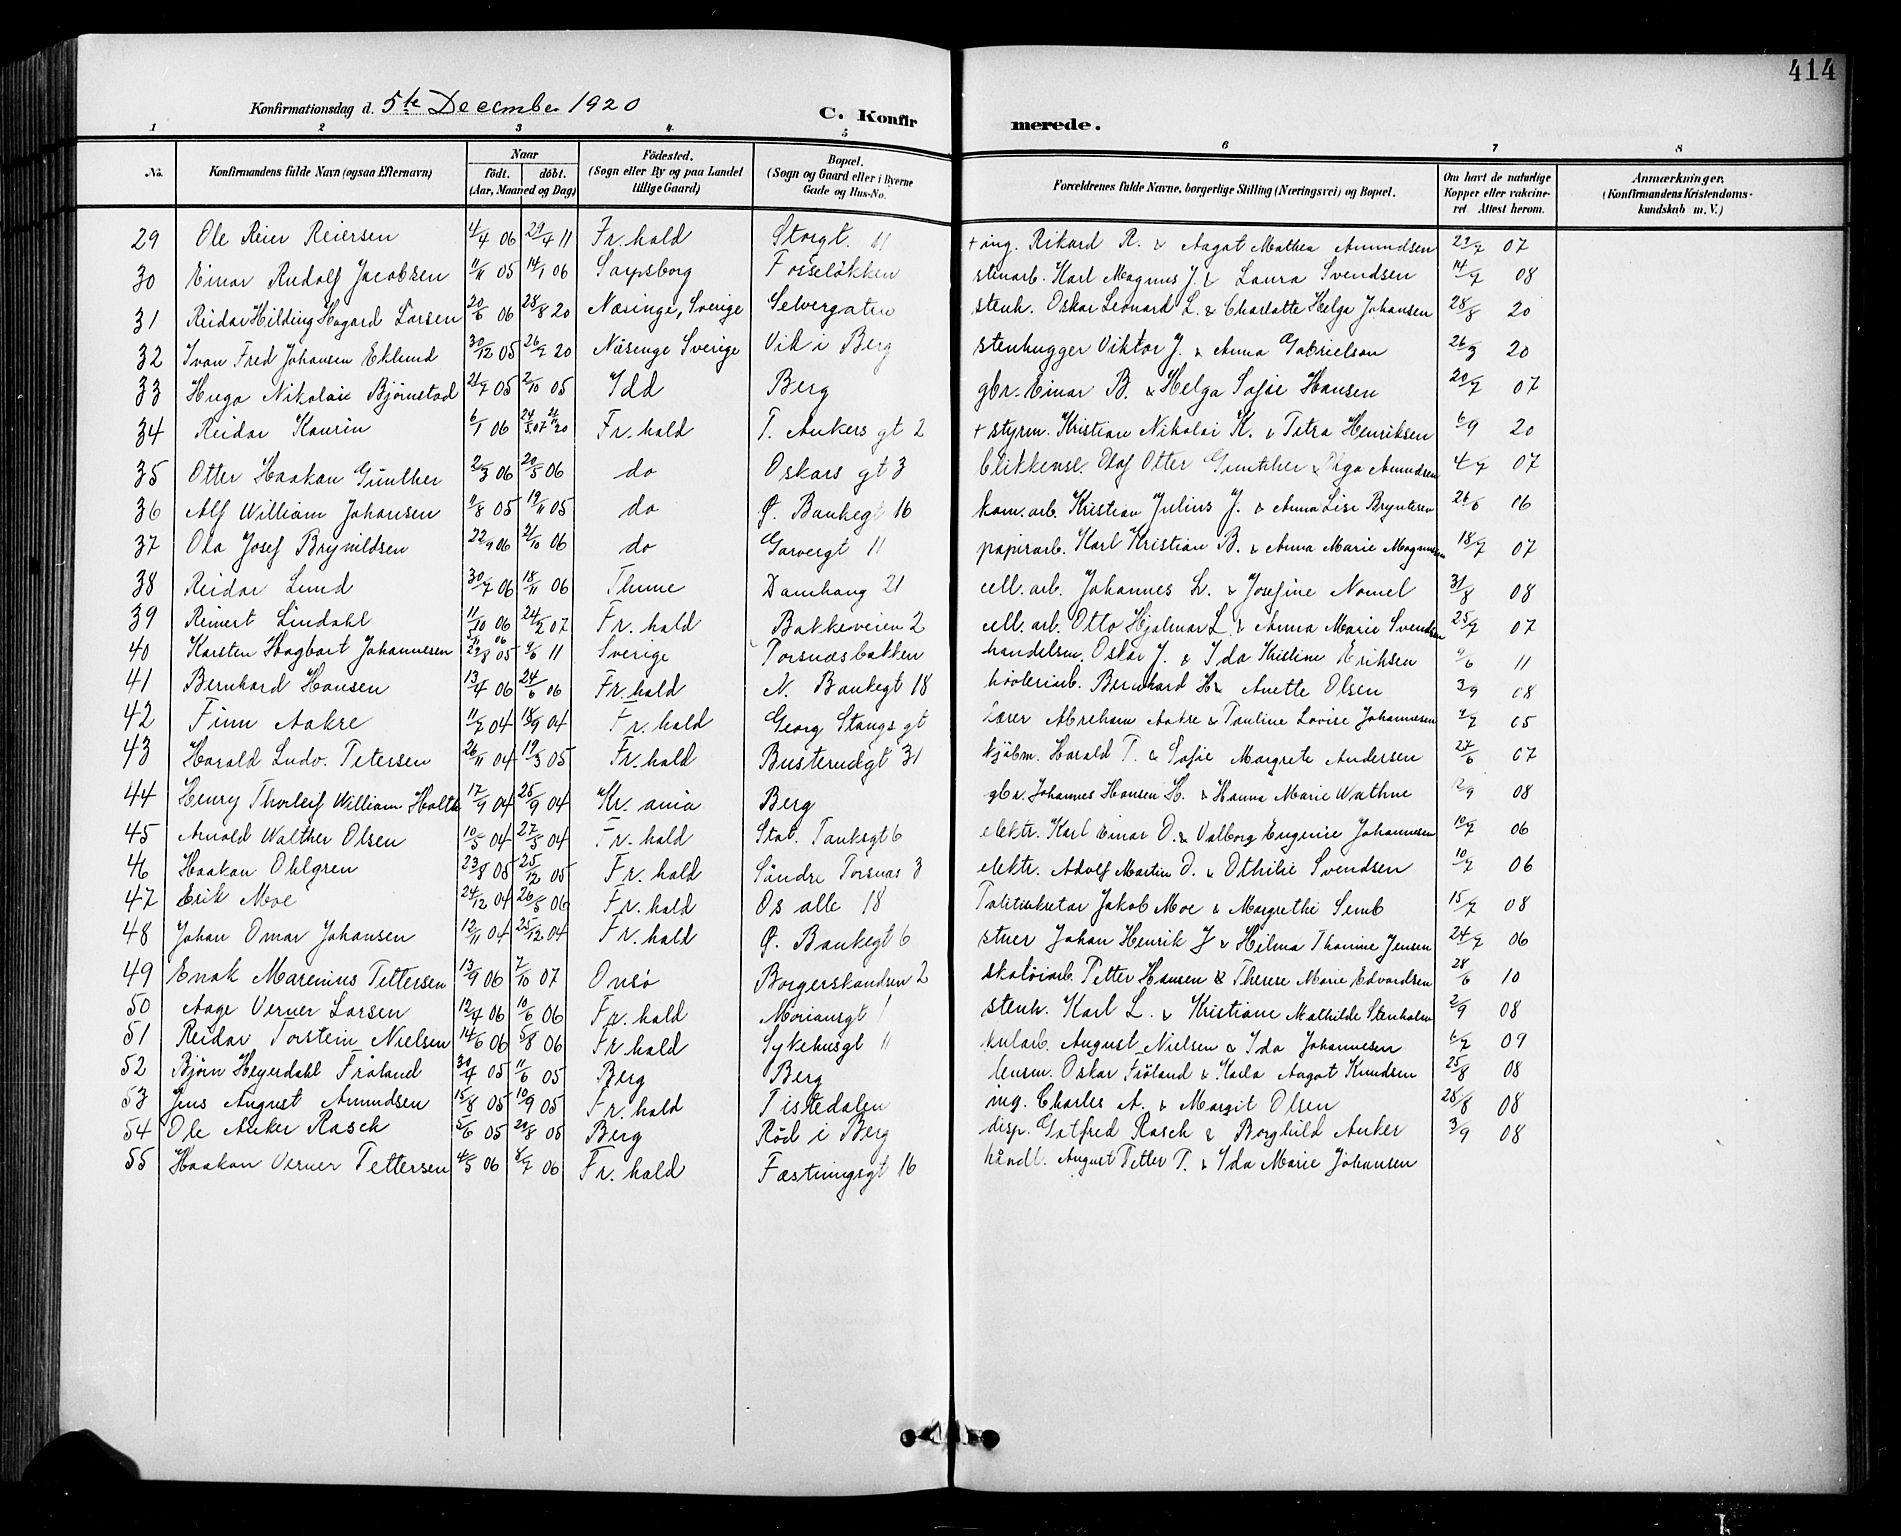 414
Konfirmationsdag d. 5te December 1920
C. Konfir merede.
1 2 3 4 5 6 7 8
No.
Konfirmandens fulde Navn (ogsaa Efternavn)
Naar
født. døbt.
(Aar, Maaned og Dag)
Födested.
(Sogn eller By og paa Landet
tillige Gaard)
Bopæl.
(Sogn og Gaard eller i Byerne
Gade og Hus-No.
Forældrenes fulde Navne, borgerlige Stilling (Næringsvei) og Bopæl.
Om havt de naturlige
Kopper eller vakcine-
ret. Attest herom.
Anmærkninger.
(Konfirmandens Kristendoms-
kundskab m. V.)
29 Ole Reier Reiersen 4/4 06 29/4 11 Fr.hald Storgt. 11 + ing. Rikard R. & Aagot Mathea Amundsen 29/7 07
30 Einar Rudolf Jacobsen 11/11 05 14/1 06 Sarpsborg Fosseløkken stenarb. Karl Magnus J. & Laura Svendsen 14/7 08
31 Reidar Hilding Hagard Larsen 20/6 06 28/8 20 Næsinge, Sverige Selvergaten stenh. Oskar Leonard L. & Charlotte Helga Johansen 28/8 20
32 Ivan Fred Johansen Eklund 30/12 05 26/7 20 Näsinge Sverige Vik i Berg stenhugger Viktor J. & Anna Gabrielson 26/7 20
33 Hugo Nikolai Bjørnstad 21/7 05 2/10 05 Idd Berg gbr. Einar B. & Helga Sofie Hansen 20/7 07
34 Reidar Kaurin 6/1 06 24/3 07 20 Fr.hald P. Ankers gt 2 + styrm. Kristian Nikolai K. & Petra Henriksen 6/9 20
35 Otter Haakon Günther 2/3 06 20/5 06 do Oskars gt 3 blikkensl. Olaf Otter Günther & Olga Amundsen 4/7 07
36 Alf William Johansen 11/8 05 19/11 05 do Ø. Bankegt 16 kom. arb. Kristian Julius J. & Anna Lise Bryntesen 26/6 06
37 Ola Josef Brynildsen 22/9 06 21/10 06 do Garvergt 11 papirarb. Karl Kristian B. & Anna Marie Magnussen 18/7 07
38 Reidar Lund 30/7 06 18/11 06 Thune Damhaug 21 cell. arb. Johannes L. & Josefine Nomel 31/8 08
39 Reinert Lindahl 11/10 06 24/2 07 Fr.hald Bakkeveien 2 cell. arb. Otto Hjalmar L. & Anna Marie Svendsen 25/7 07
40 Karsten Hagbart Johannesen 29/8 05 9/6 11 Sverige Torsnæsbakken handelsm. Oskar J. & Ida Kristine Eriksen 9/6 11
41 Bernhard Hansen 13/4 06 24/6 06 Fr.hald N. Bankegt 18 høvleriarb. Bernhard H & Anette Olsen 3/9 08
42 Finn Aakre 11/7 04 18/9 04 Fr.hald Georg Stangs gt Lærer Abraham Aakre & Pauline Lovise Johannesen 7/7 05
43 Harald Ludv. Petersen 26/11 04 19/3 05 Fr.hald Busterudgt 31 kjøbm. Harald P. & Sofie Margrete Andersen 27/6 07
44 Henry Thorleif William Holth 17/9 04 25/9 04 Kr.ania Berg gbr. Johannes Hansen H. & Hanna Marie Wathne 12/9 08
45 Arnold Walther Olsen 10/3 04 27/5 04 Fr.hald Stat. Tanksgt 6 elektr. Karl Einar O. & Valborg Eugenie Johannesen 10/7 06
46 Haakon Ohlgren 23/8 05 25/12 05 Fr.hald Søndre Torsnæs 3 elektr. Adolf Martin O. & Othilie Svendsen 10/7 06
47 Erik Moe 24/12 04 26/5 06 Fr.hald Os alle 18 Politisekretær Jakob Moe & Margrethe Semb 15/7 08
48 Johan Omar Johansen 12/11 04 25/12 04 Fr.hald Ø. Bankegt 6 stuer Johan Henrik J & Hilma Thomine Jensen 24/7 06
49 Enok Marenius Pettersen 13/9 06 7/10 07 Onsø Borgerskandsen 2 skotøiarb. Petter Hansen & Therese Marie Edvardsen 28/6 10
50 Aage Verner Larsen 12/4 06 10/6 06 Fr.hald Moriansgt 1 stenh. Karl L. & Kristiane Mathilde Stenholm 2/9 08
51 Reidar Torstein Nielsen 14/6 06 5/8 06 Fr.hald Sykehusgt 11 kularb. August Nielsen & Ida Johannesen 6/7 09
52 Bjørn Heyerdahl Frøland 30/4 05 11/6 05 Berg Berg lensm. Oskar Frøland & Karla Aagot Knudsen 25/8 08
53 Jens August Amundsen 15/8 05 10/9 05 Fr.hald Tistedalen ing. Charles A. & Margit Olsen 25/8 08
54 Ole Anker Rasch 5/6 05 20/8 05 Berg Rød i Berg disp. Gotfred Rasch & Borghild Anker 3/9 08
55 Haakon Verner Pettersen 4/5 06 8/7 06 Fr.hald Fæstningsgt 16 håndl. August Petter P. & Ida Marie Johansen